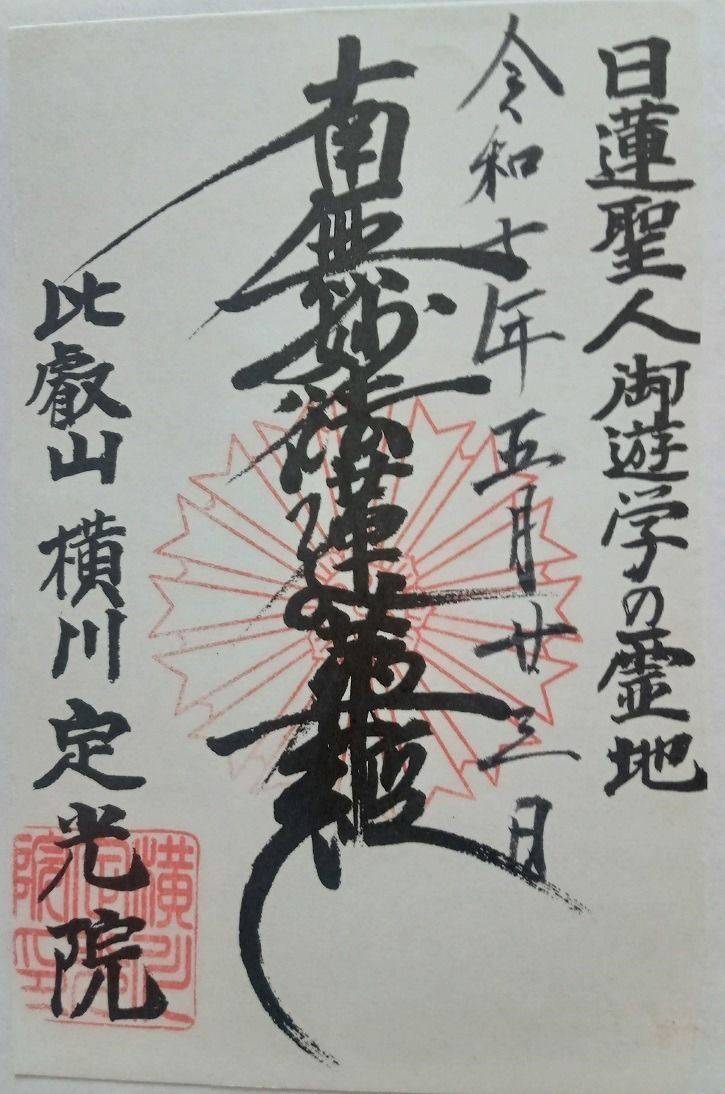 日蓮聖人御遊学の霊地
令和七年五月廿三日
南無妙法蓮華経
比叡山横川定光院